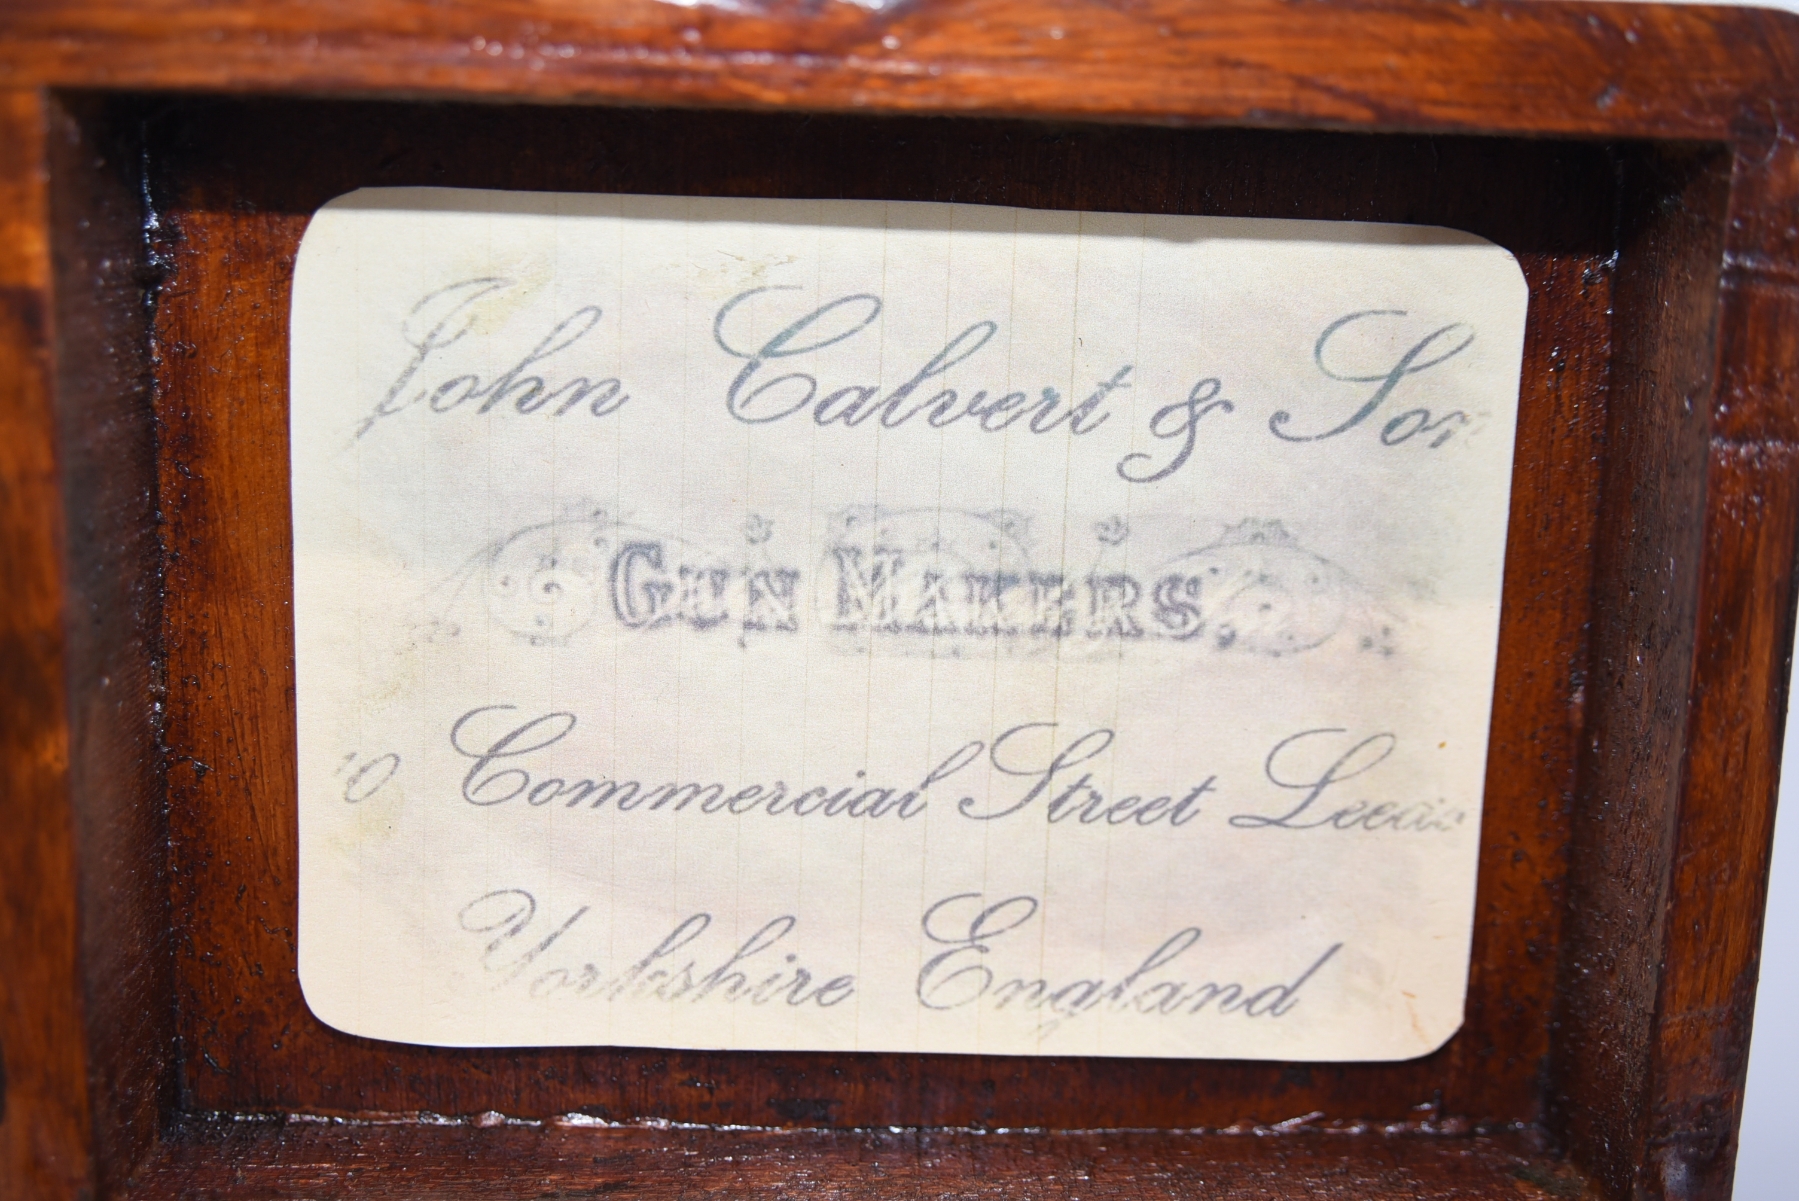 John Calvert & Son
GUN MAKERS
Commercial Street Leeds
Yorkshire England